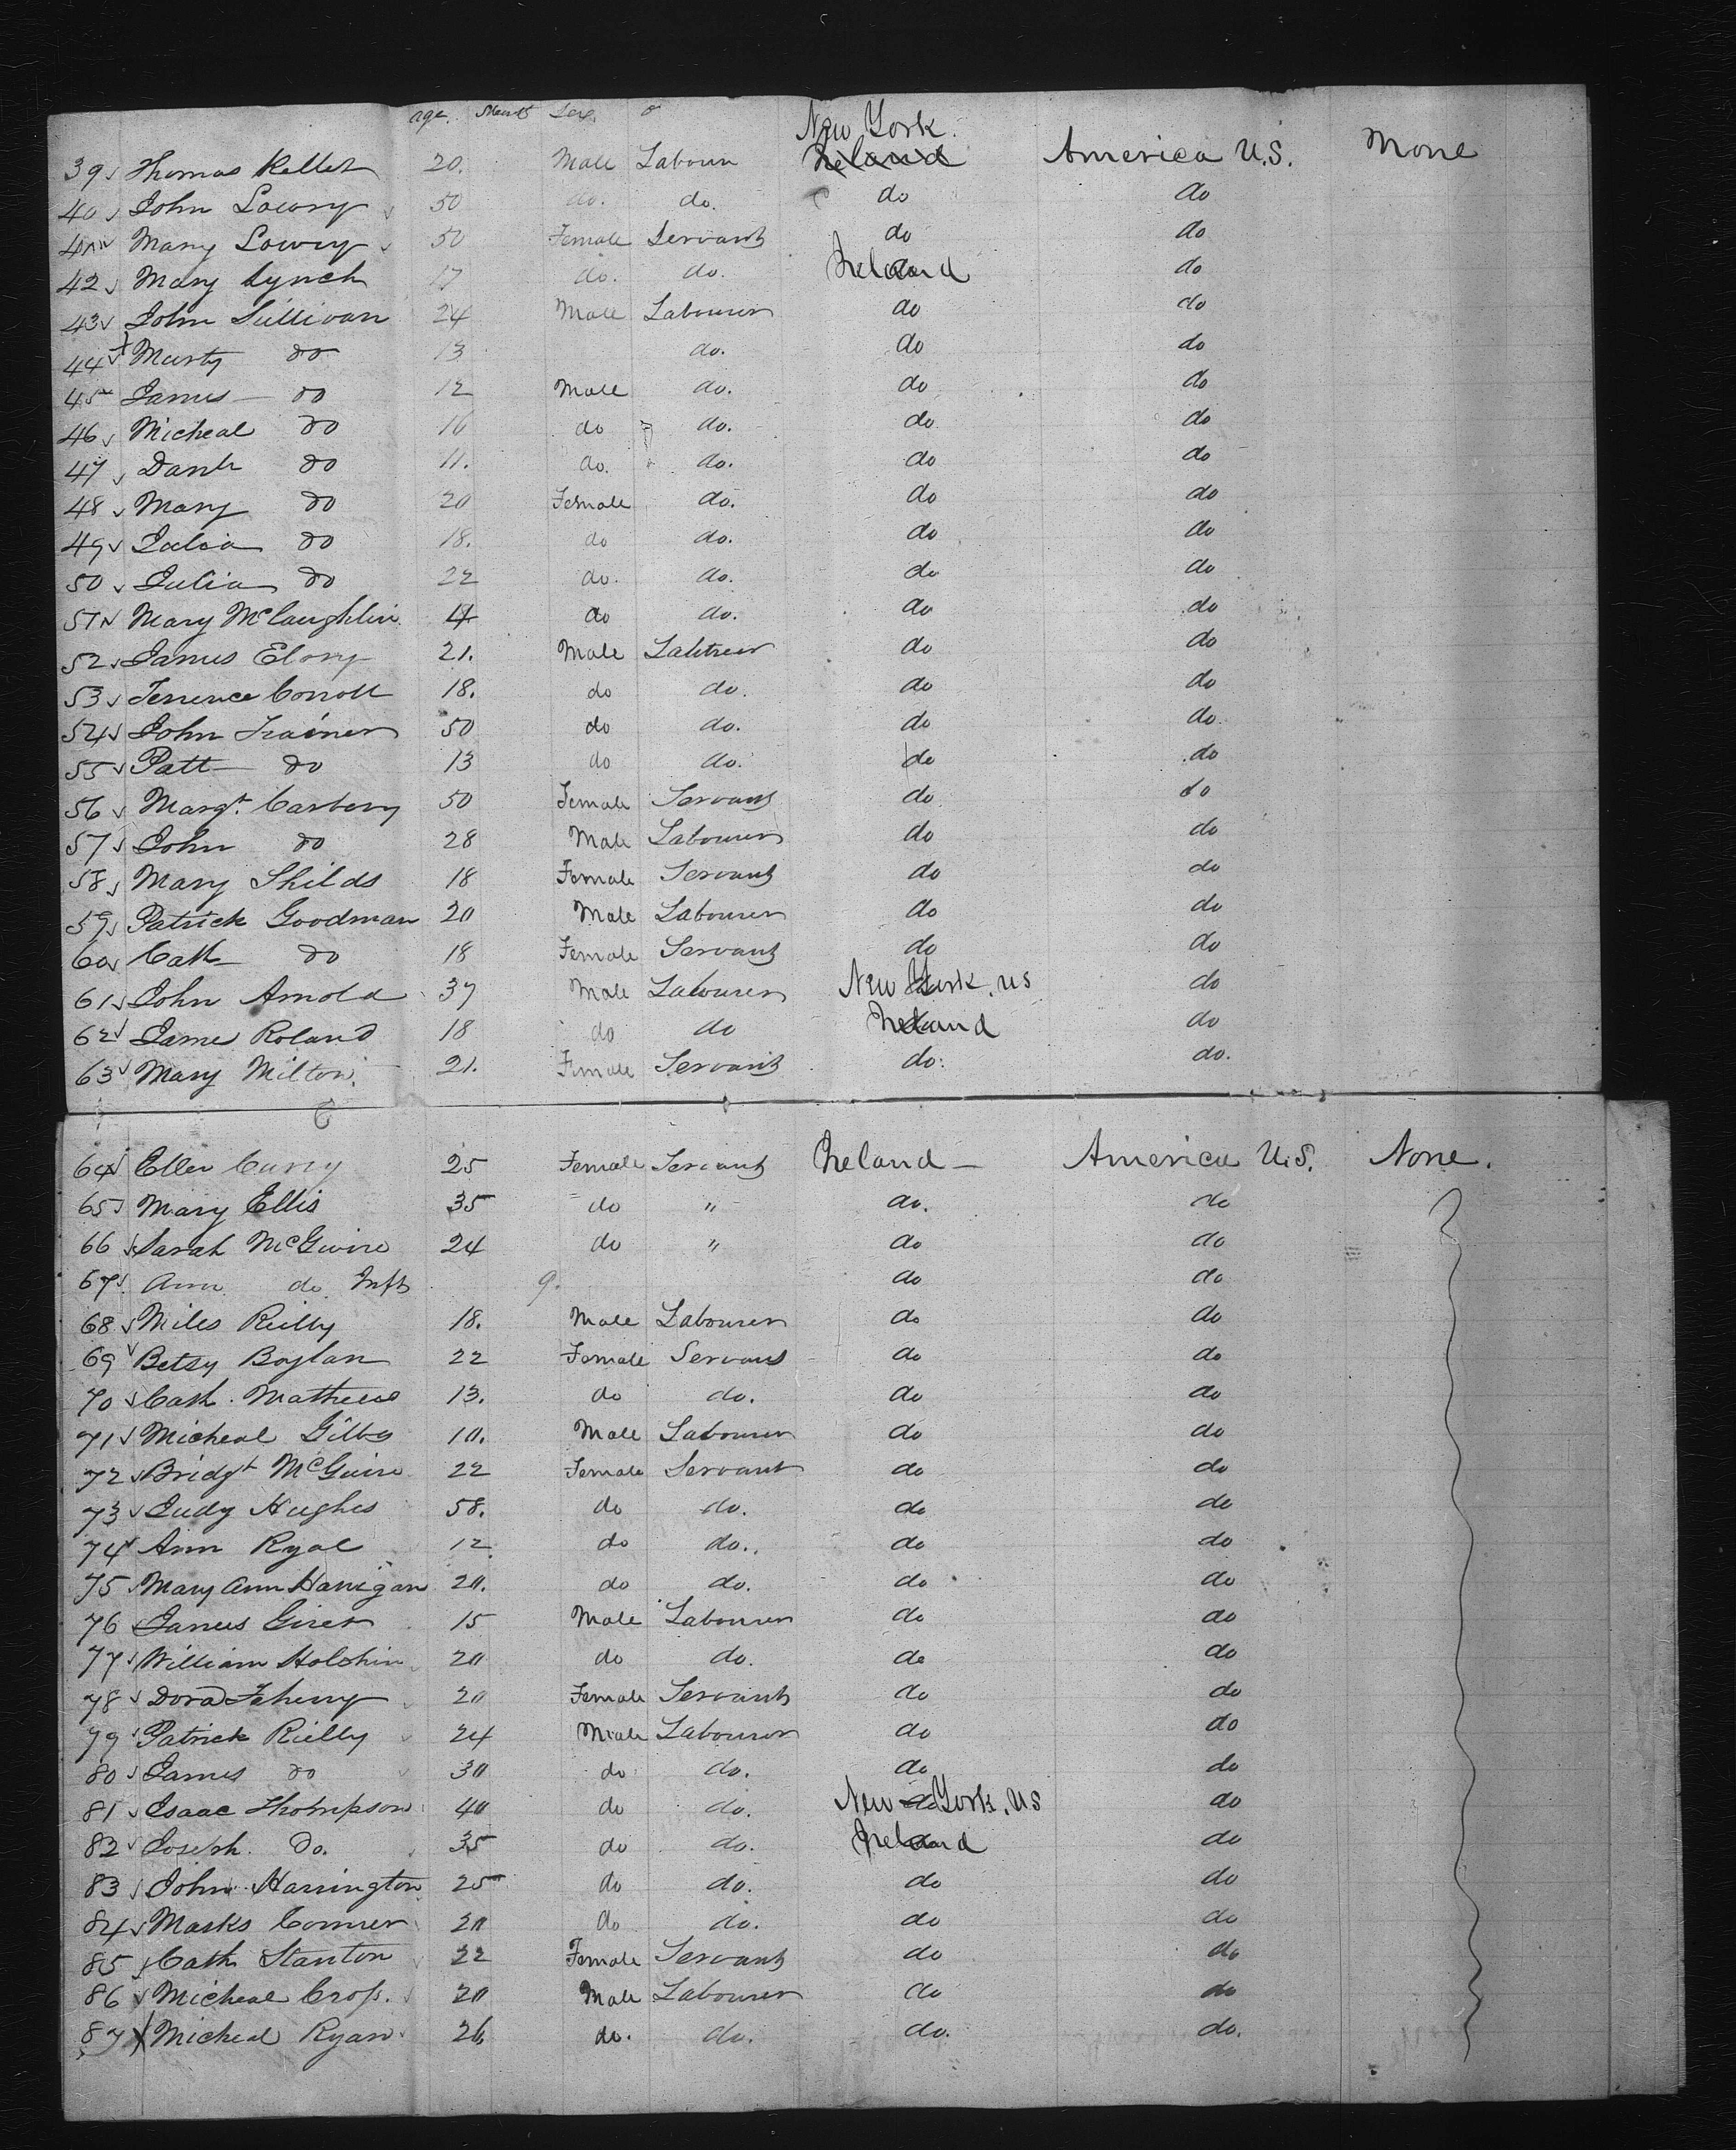 age. Sex.
New York.
39 Thomas Keller 20. Male Labourer Ireland America U.S. None
40 John Lowry 50 do. do. do do
41 Mary Lowry 50 Female Servant do do
42 Mary Lynch 17 do. do. Ireland do
43 John Sullivan 24 Male Labourer do do
44 Marty do 13 do. do do
45 James do 12 Male do. do do
46 Micheal do 10 do do. do do
47 Danl do 11. do. do. do do
48 Mary do 20 Female do. do do
49 do 18. do do. do do
50 Julia do 22 do. do. do do
51 Mary McLaughlin 4 do do. do do
52 James 21. Male do do
53 Terrence Corroll 18. do do. do do
54 John Trainer 50 do do. do do
55 Patt do 13 do do. do do
56 Margt. Carbery 50 Female Servant do do
57 John do 28 Male Labourer do do
58 Mary Shilds 18 Female Servant do do
59 Patrick Goodman 20 Male Labourer do do
60 Cath do 18 Female Servant do do
61 John Arnold 37 Male Labourer New York. US do
62 James Roland 18 do do Ireland do
63 Mary Milton. 21. Female Servant do. do.
64 Ellen 25 Female Servant Ireland — America U.S. None.
65 Mary Ellis 35 do " do. do
66 Sarah McGuire 24 do " do do
67 Ann do Inft 9. do do
68 Miles Reilly 18. Male Labourer do do
69 Betsy Boylan 22 Female Servant do do
70 Cath. Mathews 13. do do. do do
71 Micheal 10. Male Labourer do do
72 Bridgt McGuire 22 Female Servant do do
73 Judy Hughes 58. do do. do do
74 Ann Ryal 12 do do. do do
75 Mary Ann Hanigan 20. do do. do do
76 James 15 Male Labourer do do
77 William 20 do do. do do
78 Dora 20 Female Servant do do
79 Patrick Rielly 24 Male Labourer do do
80 James do 30 do do. do do
81 Isaac Thompson 40 do do. New York. US do
82 Joseph. Do. 35 do do. Ireland do
83 John Harrington 25 do do. do do
84 Marks 20 do do. do do
85 Cath Stanton 22 Female Servant do do
86 Micheal Cross. 20 Male Labourer do do
87 Micheal Ryan 26 do. do. do. do.